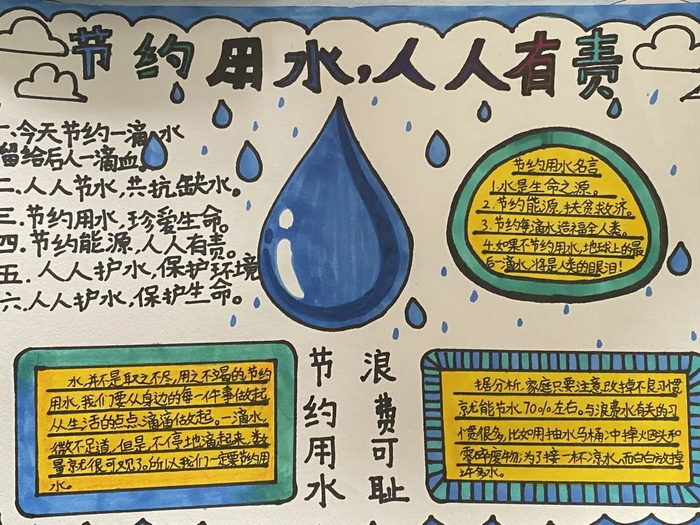 节约用水,人人有责
一.今天节约一滴水
留给后人一滴血。
二.人人节水,共抗缺水。
三.节约用水,珍爱生命。
四.节约能源,人人有责。
五.人人护水,保护环境
六.人人护水,保护生命。
节约用水名言
1.水是生命之源。
2.节约能源,扶贫救济。
3.节约每滴水,造福全人类。
4.如果不节约用水,地球上的最
后一滴水,将是人类的眼泪!
水,并不是取之不尽,用之不竭的节约
用水,我们要从身边的每一件事做起
从生活的点点滴滴做起。一滴水,
微不足道,但是,不停地滴起来,数
量就很可观了。所以我们一定要节约用
水。
节约用水
浪费可耻
据分析,家庭只要注意改掉不良习惯
就能节水70%左右。与浪费水有关的习
惯很多,比如:用抽水马桶冲掉烟头和
零碎废物;为了接一杯凉水,而白白放掉
许多水。